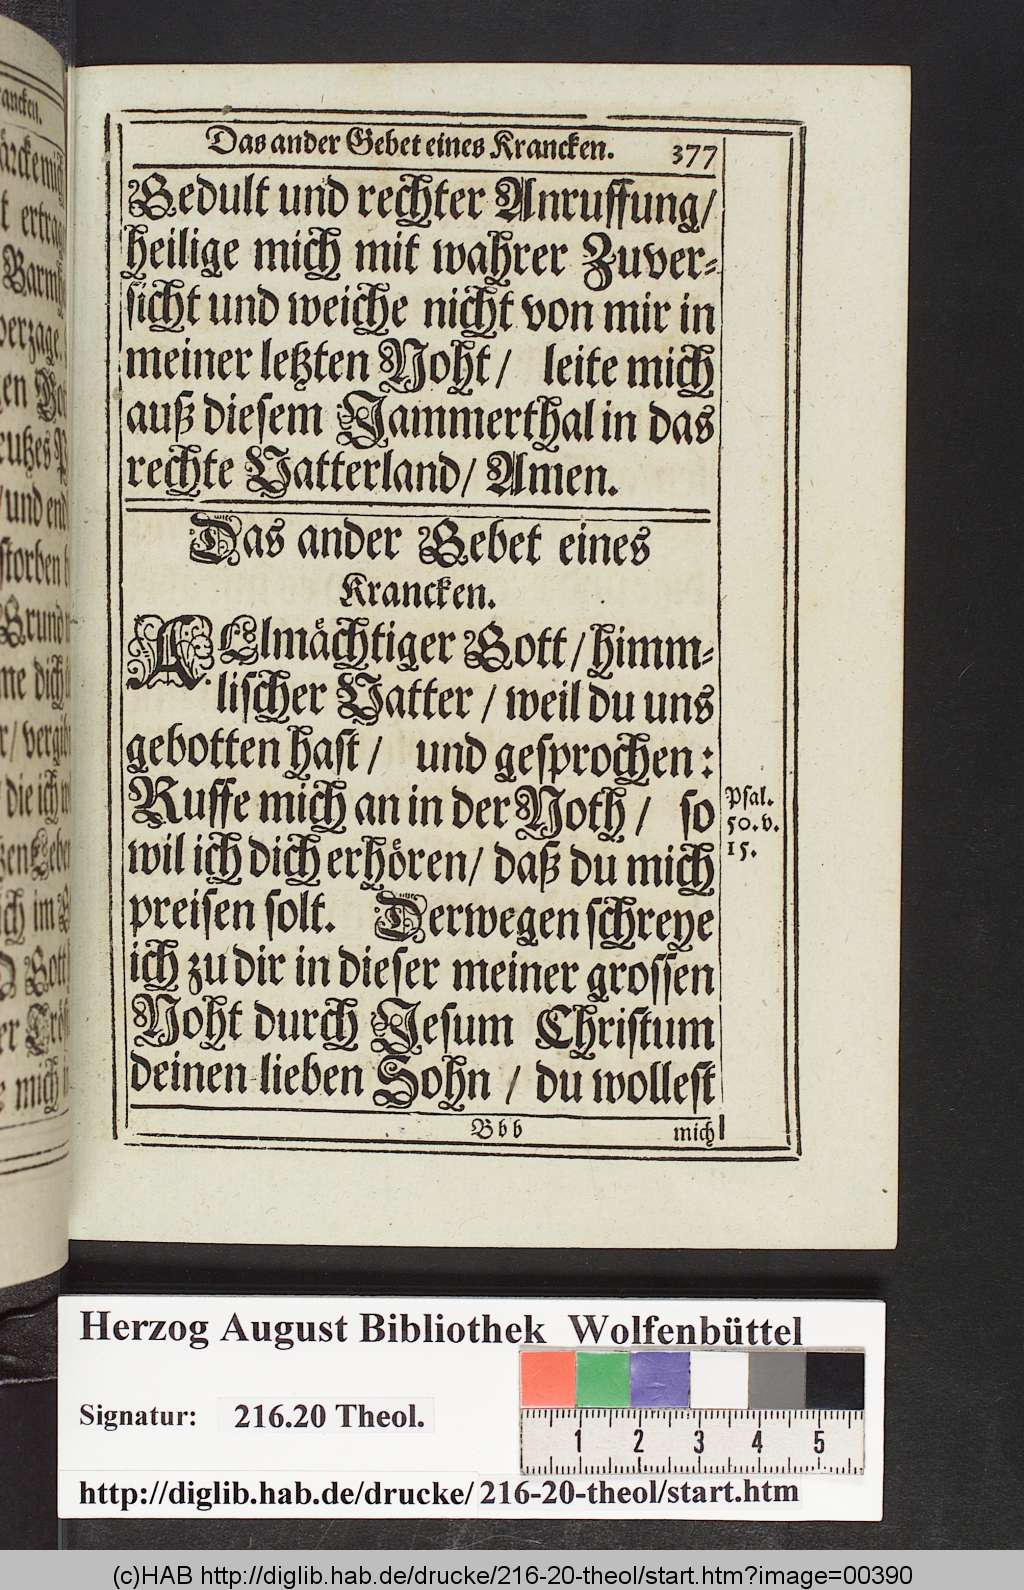 Das ander Gebet eines Krancken. 377
Gedult und rechter Anruffung/
heilige mich mit wahrer Zuver-
sicht und weiche nicht von mir in
meiner letzten Noht/ leite mich
auß diesem Jammerthal in das
rechte Vatterland/ Amen.
Das ander Gebet eines
Krancken.
ALlmächtiger Gott/ himm-
lischer Vatter/ weil du uns
gebotten hast/ und gesprochen:
Ruffe mich an in der Noth/ so
wil ich dich erhören/ daß du mich
preisen solt. Derwegen schreye
ich zu dir in dieser meiner grossen
Noht durch Jesum Christum
deinen lieben Sohn/ du wollest
Psal.
50.v.
15.
Bbb mich
Herzog August Bibliothek Wolfenbüttel
Signatur: 216.20 Theol.
1 2 3 4 5
http://diglib.hab.de/drucke/216-20-theol/start.htm
(c)HAB http://diglib.hab.de/drucke/216-20-theol/start.htm?image=00390